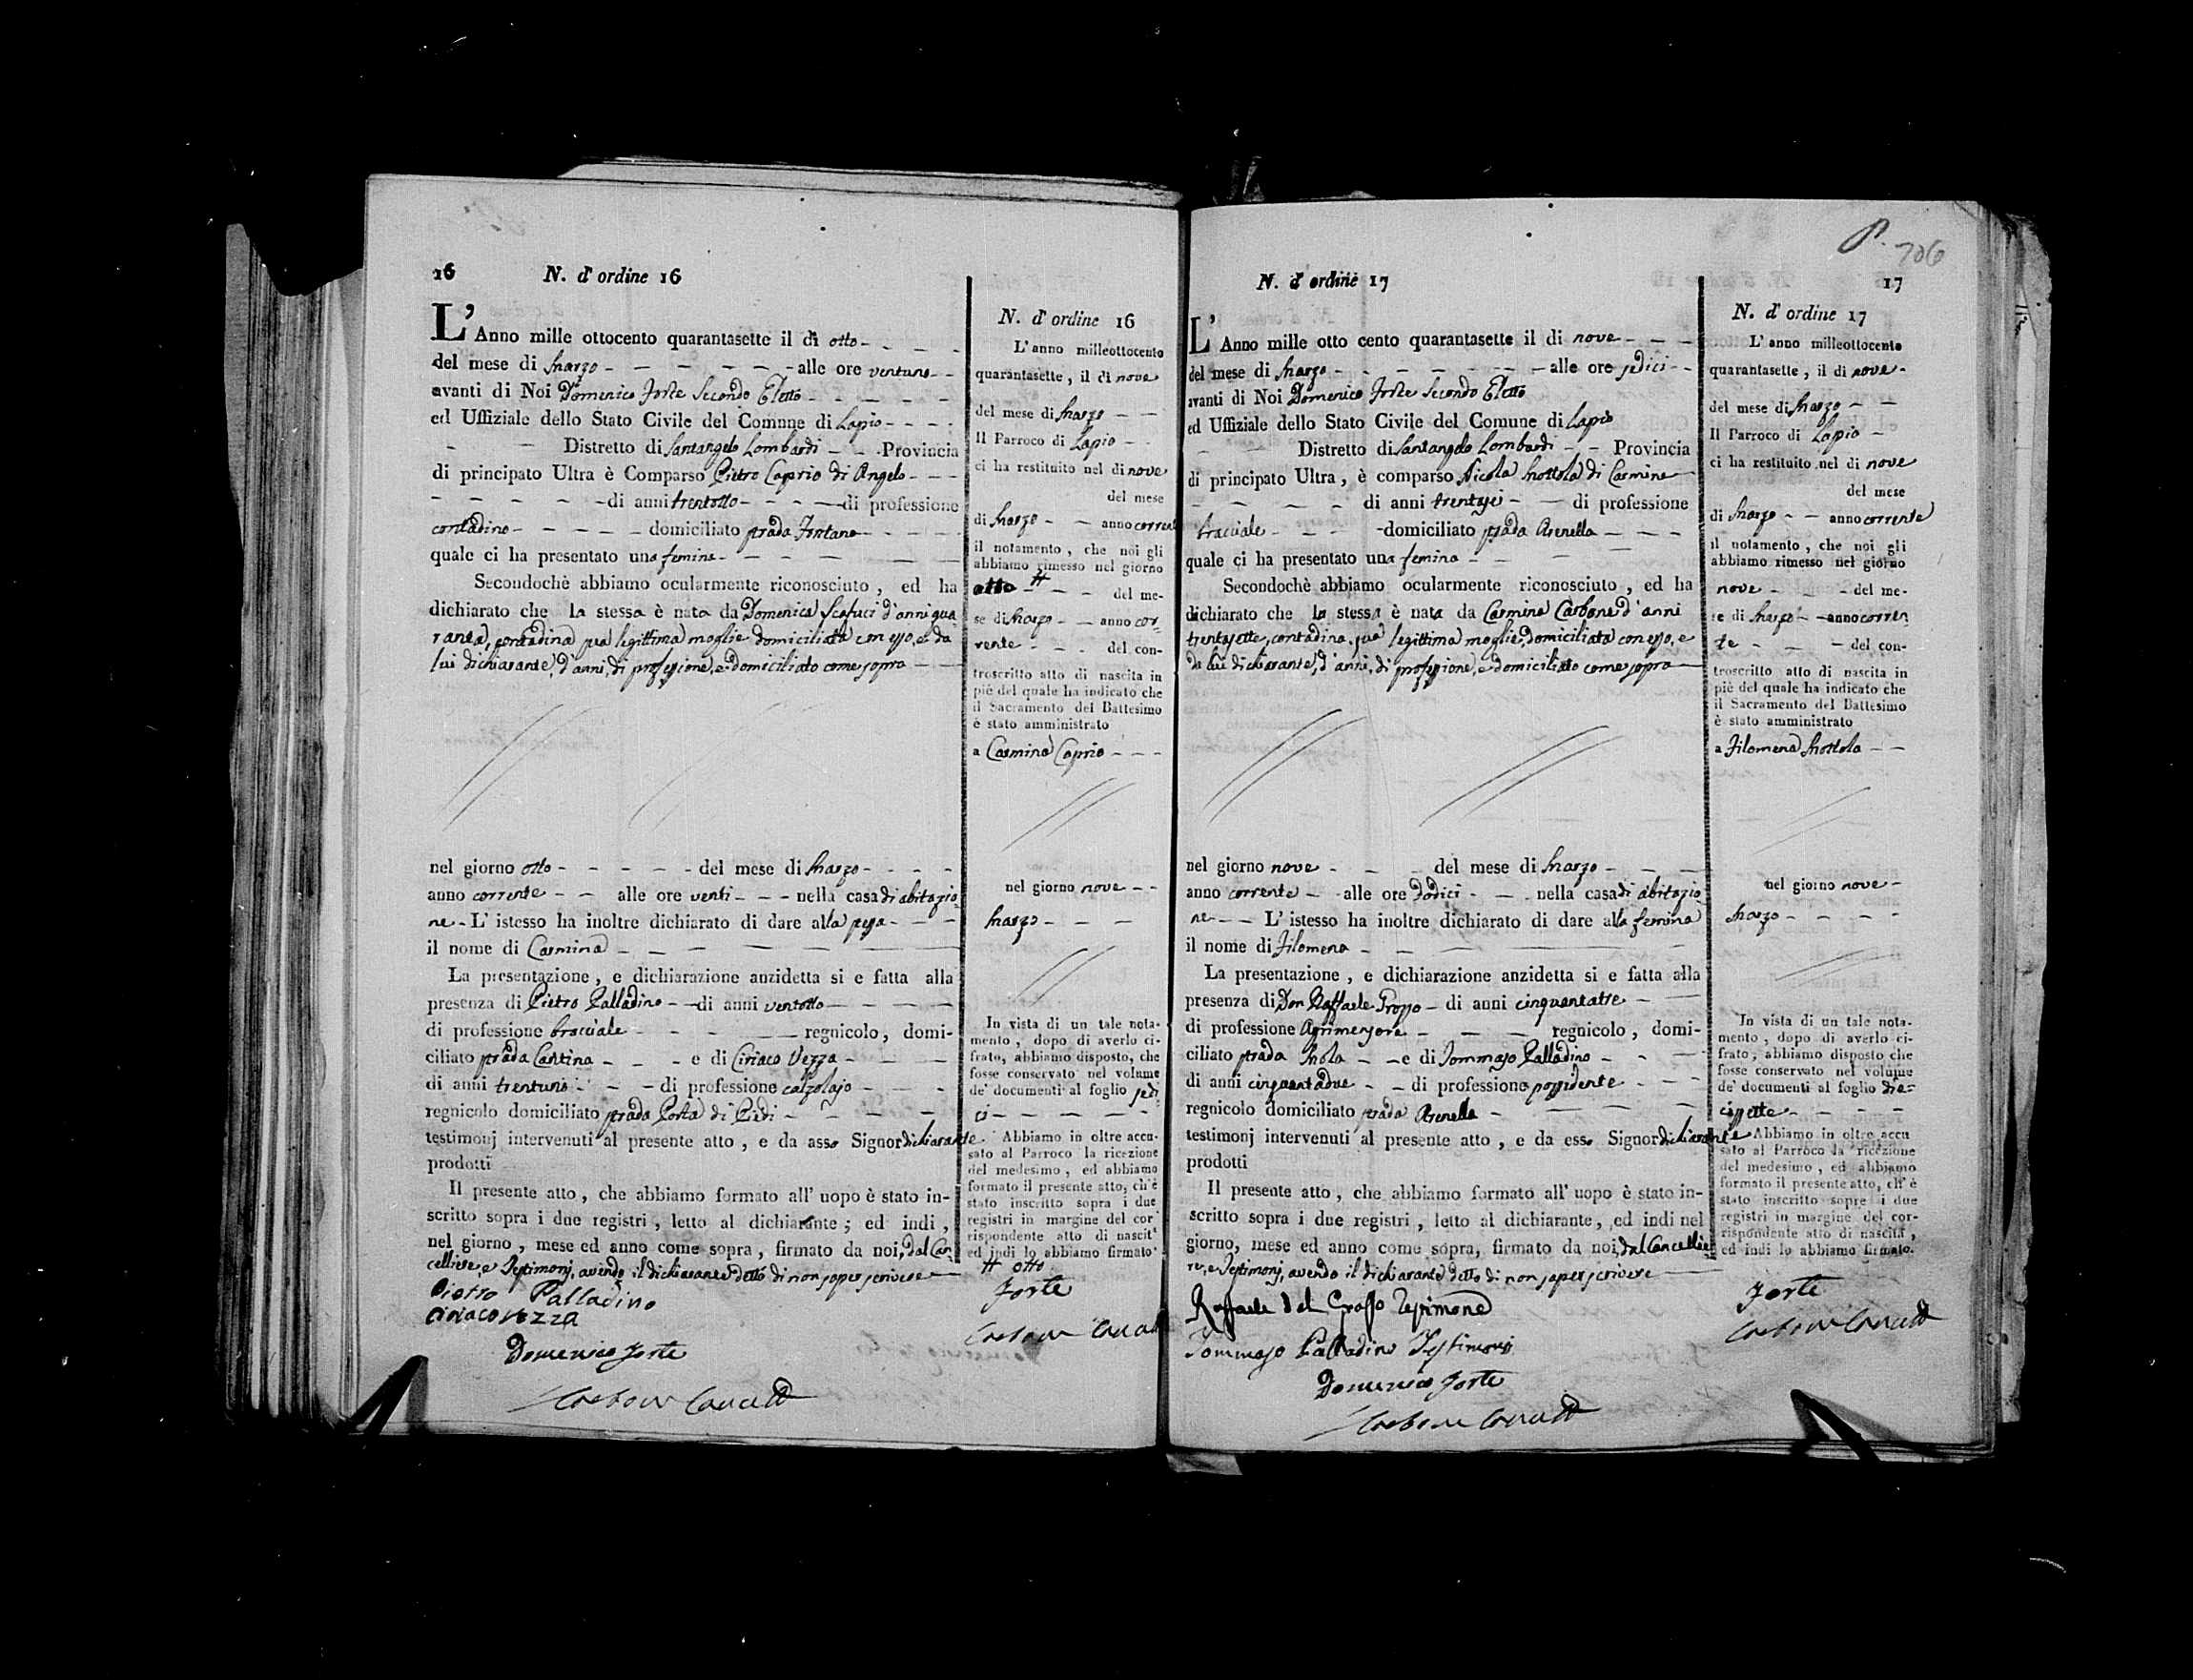 16 N. d'ordine 16
L'Anno mille ottocento quarantasette il dì otto
del mese di Marzo alle ore ventuno
avanti di Noi Domenico Forte Secondo Eletto
ed Uffiziale dello Stato Civile del Comune di Lapio
Distretto di Santangelo Lombardi Provincia
di principato Ultra è Comparso Pietro Caprio di Angelo
di anni trentotto di professione
contadino domiciliato strada Fontana
quale ci ha presentato una femina
Secondochè abbiamo ocularmente riconosciuto, ed ha
dichiarato che la stessa è nata da Domenica Scafuci d'anni qua
ranta, contadina sua legittima moglie domiciliata con esso, e da
lui dichiarante, d'anni, di professione, e domiciliato come sopra
nel giorno otto del mese di Marzo
anno corrente alle ore venti nella casa di abitazio
ne L'istesso ha inoltre dichiarato di dare alla stessa
il nome di Carmina
La presentazione, e dichiarazione anzidetta si e fatta alla
presenza di Pietro Palladino di anni ventotto
di professione bracciale regnicolo, domi-
ciliato strada Cantina e di Ciriaco Vezza
di anni trentuno di professione calzolajo
regnicolo domiciliato strada Porta di Piedi
testimonj intervenuti al presente atto, e da asso Signor dichiarante
prodotti
Il presente atto, che abbiamo formato all' uopo è stato in-
scritto sopra i due registri, letto al dichiarante; ed indi,
nel giorno, mese ed anno come sopra, firmato da noi, dal Can-
celliere, e Testimonj, avendo il dichiarante detto di non saper scrivere
Pietro Palladino
Ciriaco Vezza
Domenico Forte
N. d'ordine 16
L'anno milleottocento
quarantasette, il di nove
del mese di Marzo
Il Parroco di Lapio
ci ha restituito nel di nove
del mese
di Marzo anno corrente
il notamento, che noi gli
abbiamo rimesso nel giorno
otto # del me-
se di Marzo anno cor-
rente del con-
troscritto atto di nascita in
piè del quale ha indicato che
il Sacramento del Battesimo
è stato amministrato
a Carmina Caprio
nel giorno nove
Marzo
In vista di un tale nota-
mento, dopo di averlo ci-
frato, abbiamo disposto, che
fosse conservato nel volume
de' documenti al foglio sedi
ci
Abbiamo in oltre accu-
sato al Parroco la ricezione
del medesimo, ed abbiamo
formato il presente atto, ch'è
stato inscritto sopra i due
registri in margine del cor
rispondente atto di nascit
ed indi lo abbiamo firmato
# otto
Forte
P. 706
N. d'ordine 17 17
L'Anno mille otto cento quarantasette il di nove
del mese di Marzo alle ore sedici
avanti di Noi Domenico Forte Secondo Eletto
ed Uffiziale dello Stato Civile del Comune di Lapio
Distretto di Santangelo Lombardi Provincia
di principato Ultra, è comparso Nicola Mottola di Carmine
di anni trentasei di professione
bracciale domiciliato strada Arenella
quale ci ha presentato una femina
Secondochè abbiamo ocularmente riconosciuto, ed ha
dichiarato che la stessa è nata da Carmina Carbone d'anni
trentasette, contadina, sua legittima moglie, domiciliata con esso, e
da lui dichiarante, d'anni, di professione, e domiciliato come sopra
nel giorno nove del mese di Marzo
anno corrente alle ore dodici nella casa di abitazio
ne L'istesso ha inoltre dichiarato di dare alla femina
il nome di Filomena
La presentazione, e dichiarazione anzidetta si e fatta alla
presenza di Don Raffaele Grosso di anni cinquantatre
di professione Agrimensore regnicolo, domi-
ciliato strada Mola e di Tommaso Palladino
di anni cinquantadue di professione possidente
regnicolo domiciliato strada Arenella
testimonj intervenuti al presente atto, e da esso Signor dichiarante
prodotti
Il presente atto, che abbiamo formato all' uopo è stato in-
scritto sopra i due registri, letto al dichiarante, ed indi nel
giorno, mese ed anno come sopra, firmato da noi, dal Cancellie
re, e Testimonj, avendo il dichiarante detto di non saper scrivere
Raffaele del Grosso Testimone
Tommaso Palladino Testimonio
Domenico Forte
N. d'ordine 17
L'anno milleottocento
quarantasette, il di nove
del mese di Marzo
Il Parroco di Lapio
ci ha restituito nel di nove
del mese
di Marzo anno corrente
il notamento, che noi gli
abbiamo rimesso nel giorno
nove del me-
se di Marzo anno corren
te del con-
troscritto atto di nascita in
piè del quale ha indicato che
il Sacramento del Battesimo
è stato amministrato
a Filomena Mottola
nel giorno nove
Marzo
In vista di un tale nota-
mento, dopo di averlo ci-
frato, abbiamo disposto che
fosse conservato nel volume
de' documenti al foglio dia=
cissette
Abbiamo in oltre accu
sato al Parroco la ricezione
del medesimo, ed abbiamo
formato il presente atto, ch'è
stato inscritto sopre i due
registri in margine del cor-
rispondente atto di nascita,
ed indi lo abbiamo firmato.
Forte